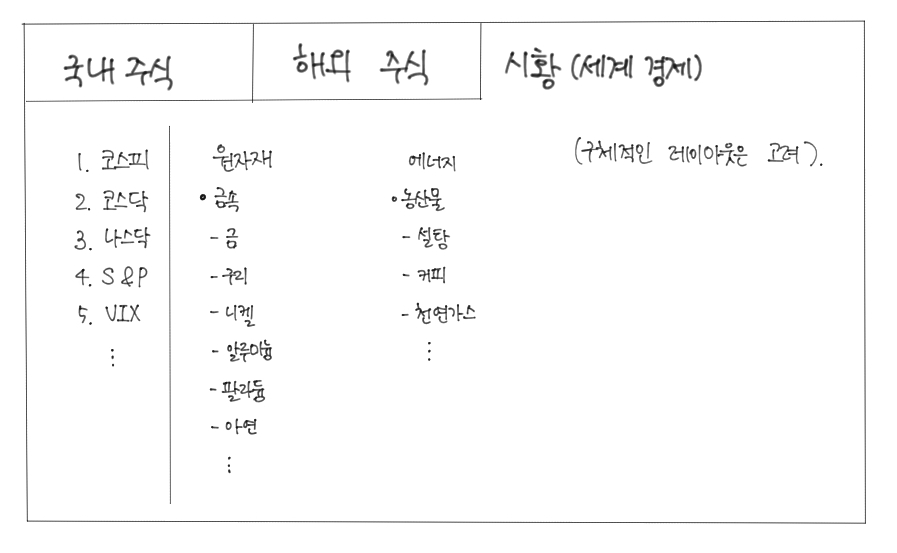 국내 주식
해외 주식
시황 (세계 경제)
1. 코스피
2. 코스닥
3. 나스닥
4. S&P
5. VIX
⋮
원자재
• 금속
- 금
- 구리
- 니켈
- 알루미늄
- 팔라듐
- 아연
⋮
에너지
• 농산물
- 설탕
- 커피
- 천연가스
⋮
(구체적인 레이아웃은 고려).